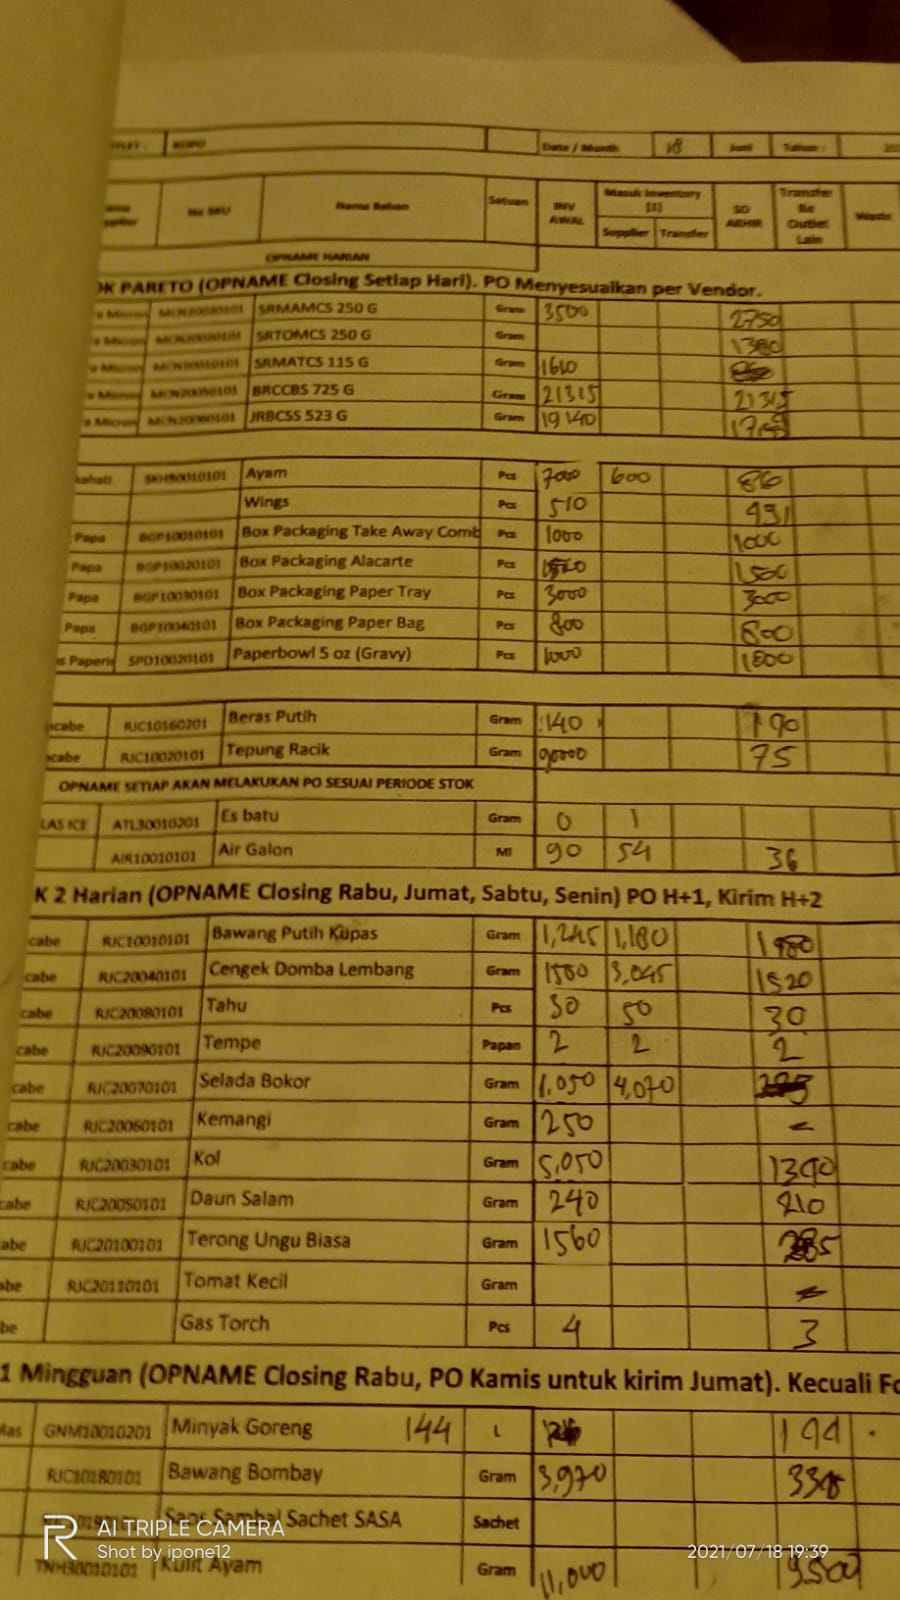 KOPO Date / Month 18 Juni Tahun :
No SKU Nama Bahan Satuan INV AWAL Masuk Inventory (1) Supplier Transfer SO AKHIR Transfer Ke Outlet Lain Waste
OPNAME HARIAN
OK PARETO (OPNAME Closing Setiap Hari). PO Menyesuaikan per Vendor.
SRMAMCS 250 G Gram 3500 2750
SRTOMCS 250 G Gram 1380
SRMATCS 115 G Gram 1610
BRCCBS 725 G Gram 21315 21315
JRBCSS 523 G Gram 19140
kahati SKH30010101 Ayam Pcs 7000 600
Wings Pcs 510 491
Papa BGP10010101 Box Packaging Take Away Comb Pcs 1000 1000
Papa BGP10020101 Box Packaging Alacarte Pcs 1500
Papa BGP10030101 Box Packaging Paper Tray Pcs 3000 3000
Papa BGP10040101 Box Packaging Paper Bag Pcs 800 800
s Paperi SPD10020101 Paperbowl 5 oz (Gravy) Pcs 1000 1000
cabe RJC10160201 Beras Putih Gram 140 190
cabe RJC10020101 Tepung Racik Gram 90000 75
OPNAME SETIAP AKAN MELAKUKAN PO SESUAI PERIODE STOK
LAS ICE ATL30010201 Es batu Gram 0 1
AIR10010101 Air Galon Ml 90 54 36
K 2 Harian (OPNAME Closing Rabu, Jumat, Sabtu, Senin) PO H+1, Kirim H+2
cabe RJC10010101 Bawang Putih Kupas Gram 1,245 1,180 1980
cabe RJC20040101 Cengek Domba Lembang Gram 1500 3,045 1520
cabe RJC20080101 Tahu Pcs 50 50 30
cabe RJC20090101 Tempe Papan 2 2 2
cabe RJC20070101 Selada Bokor Gram 1.050 4,070
cabe RJC20060101 Kemangi Gram 250 -
cabe RJC20030101 Kol Gram 5,050 1390
cabe RJC20050101 Daun Salam Gram 240 210
abe RJC20100101 Terong Ungu Biasa Gram 1560
abe RJC20110101 Tomat Kecil Gram
be Gas Torch Pcs 4 3
1 Mingguan (OPNAME Closing Rabu, PO Kamis untuk kirim Jumat). Kecuali Fo
Mas GNM10010201 Minyak Goreng 144 L 194
RJC10180101 Bawang Bombay Gram 3,970
Saos Sambal Sachet SASA Sachet
TNH30010101 Kulit Ayam Gram 11,000
AI TRIPLE CAMERA
Shot by ipone12
2021/07/18 19:39